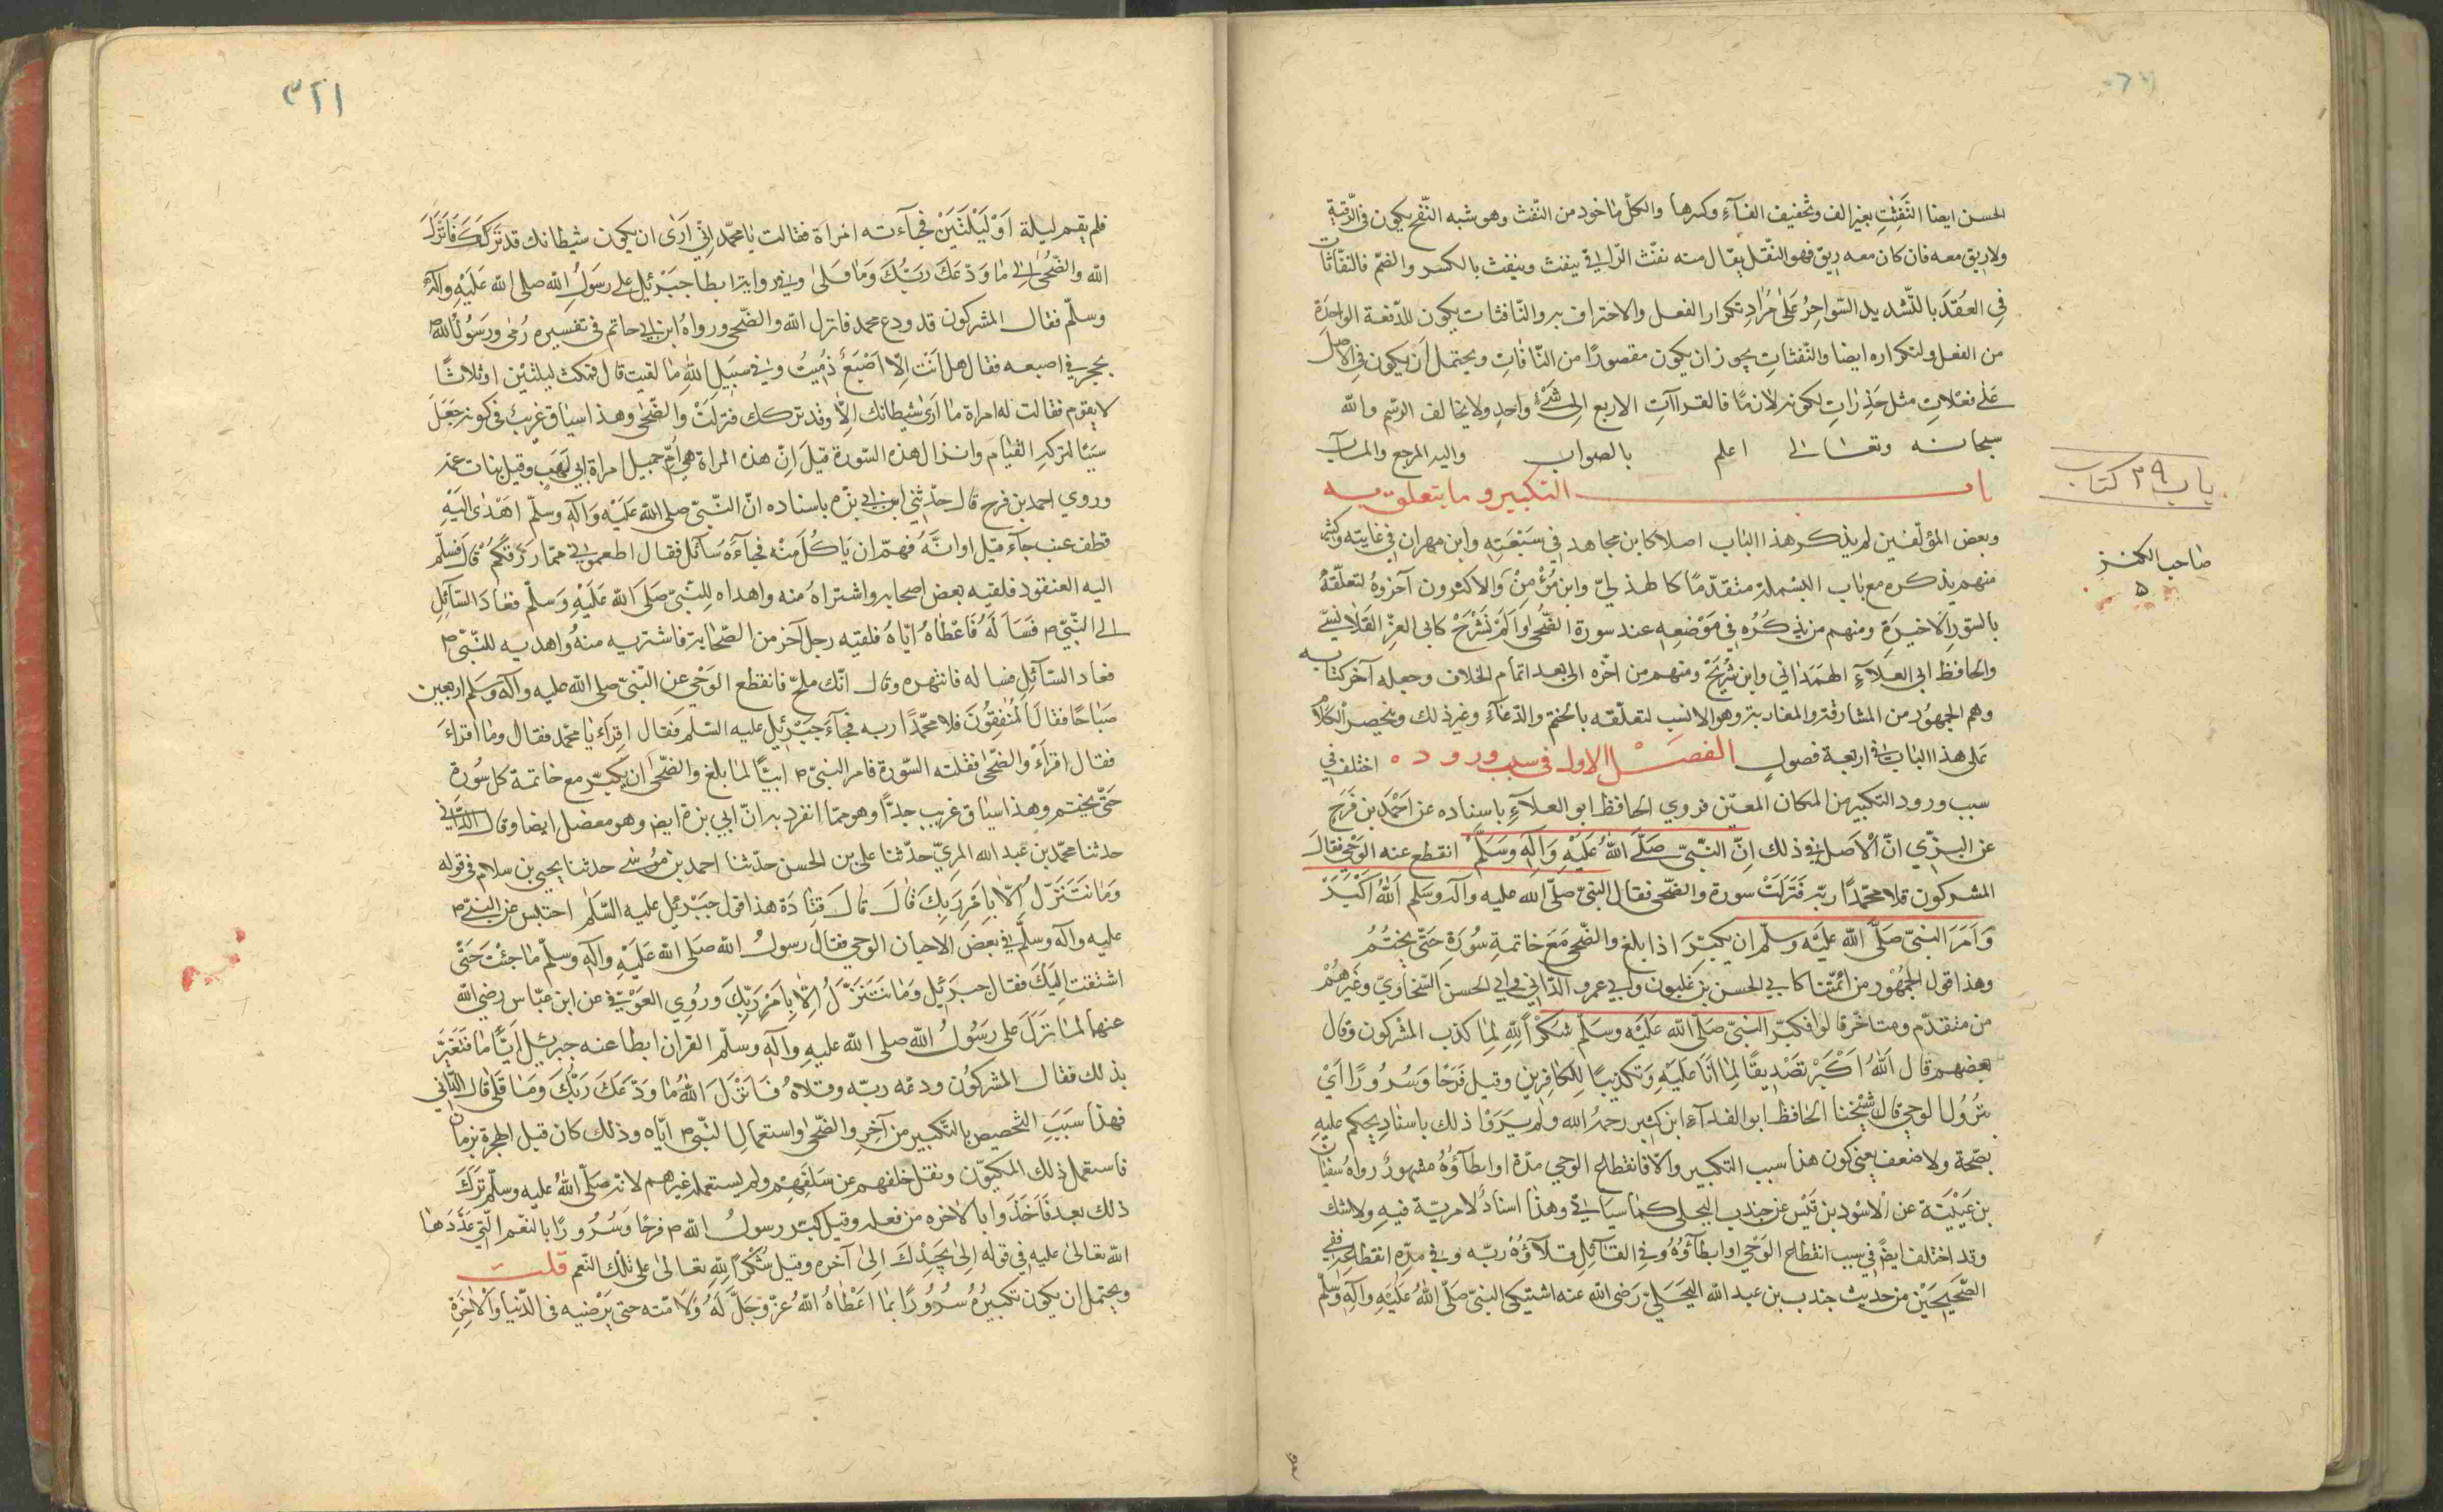 الحسن ايضا النَّفِثٰتِ بغير الف وتخفيف الفآءِ وكسرها والكلّ مأخوذ من النّفث وهو شبه النّفخ يكون في الرّقية
ولا ريق معه فان كان معه ريق فهو التّفل يقال منه نفث الرّاقي ينفِث وينفُث بالكسر والضمّ فالنّفّاثات
فِي العُقَدِ بالتّشديد السّواحِرُ عَلىٰ مُرَادِ تكرار الفعل والاحتراف به والنّافثات يكون للدّفعة الواحِدَة
من الفعل ولتكراره ايضا والنّفثاتِ يجوز ان يكون مقصورًا من النّافاتِ ويحتمل اَن يكون في الاصل
عَلٰى فعلاتِ مثل حَذِرَاتٍ لكونه لازمًا فالقراآتِ الاربع الى شَىْءٍ واحدٍ ولا يخالف الرّسم والله
سبحانه وتعالىٰ اعلم بالصواب واليه المرجع والمآب
باب التكبير وما يتعلق به
باب ٣٩ كتاب
وبعض المؤلّفين لم يذكر هذا الباب اصلا كابن مجاهد في سَبْعَتِه وابن مهران في غايته وكثير
صاحب الكنز
٥
منهم يذكره مع بَاب البسْملة متقدّمًا كالهذليّ وابن مُؤْمِنْ والاكثرون آخرَوهُ لتعلّقهُ
بالسّور الاخيرَةِ ومنهم من يذكُرُه في مَوْضعِهِ عند سورة الضّحٰى وَاَلَمْ نَشْرَحْ كابي العِزّ القَلَانسيّ
والحافظ ابي العلآءِ الهمَدٰاني وابن شُرَيْحْ ومنهم من اخّره الى بعد اتمام الخلاف وجعله آخر كتابه
وهم الجمهوُر من المشارقة والمغاربة وهو الانسب لتعلّقه بالختم والدّعآءِ وغير ذلك وينحصر الكلامُ
عَلى هذا الباب في اربعة فصولٍ الفصَل الاول في سبب وروده اختلف في
سبب ورود التكبير من المكان المعيّن فروي الحافظ ابو العلآءِ باسناده عن احْمَدَ بن فَرَحِ
عن البزّي انّ الْاَصل في ذلك اِنَّ النَّبِيّ صَلَّى اللهُ عَلَيْهِ وَآلِهِ وَسَلَّمَ انقطع عنه الوَحْي فقالَ
المشركون قلا محمّدًا ربّه فَنَزَلَتْ سورة والضّحى فقال النبيّ صلّى الله عليه وآله وسَلم اَللهُ اَكْبَرْ
وَاَمَرَ النبيّ صَلّى الله عَلَيْهِ وسلّم ان يكبّرَ اذا بلغ والضّحى مَعَ خاتمةِ سُورَةٍ حَتّٰى يختُمُ
وهذا قول الجُمْهُوْر من ائمّتنا كابي الحسن بن غَلبون وابي عمرو الدّاني وابي الحسن السّخاوِيّ وغَيْرهُمْ
من متقدّم ومتاخّر قالوا فكبّر النبيّ صَلّى الله عَلَيْهِ وسَلّم شكْرًا لِلّٰهِ لِمٰا كذب المشركون وقال
بعضهم قال اللهُ اَكْبَرْ تصْدِيقًا لِمٰا اَنَا عَليَهِ وَتكذيبًا للكافِرينٍ وقيل فَرَحًا وَسُرُورًا اَيْ
بنُزُول الوحي قال شَيْخنا الحافظ ابو الفدآءِ ابن كثير رحمهُ الله ولم يَرَوْا ذلك باسنادِ يحكم عليهِ
بصّحة ولا ضعف يعني كون هذا سبب التكبير والّا فانقطاع الوحي مدّة او ابطآؤُهُ مشهورٌ رواهُ سفيٰان
بن عُيَيْنَة عن الاسْود بن قَيْس عن جندب البجلى كمٰا سيَاتي وهذا اسنادٌ لا مريّة فيهِ ولا شك
وقد اختلف ايضًا في سبب انقطاع الوَحْي او ابطآؤُهُ وفي القآئلِ قلاؤهُ ربّه وفي مدّةِ انقطاعِهِ ففِي
الصّحَيحَيْن من حديث جندب بن عبد الله البَجَليّ رَضى الله عنه اشتيكى النبيّ صَلّى اللهُ عَلَيْهِ وآلهِ وسّلَم
٣٢١
فلم يقم ليلة اَوْ لَيْلَتَيَنْ فجآءته امراة فقالت يٰا محمّد اِنّي اَرَىٰ ان يكون شيطانك قد تَرَكَكَ فَاَنْزَلَ
الله والضّحُىٰ اِلى مٰا وَدّعَكَ رَبُّكَ وَمٰا قَلىٰ وفي رواية ابطا جبَرْئيل على رسَولُ الله صلى الله عَلَيْهِ وآله
وسلّم فقال المشركون قد ودع محمد فانزل الله والضّحى ورواهُ ابن ابي حاتم في تفسيره رُمي ورسَوُلُ الله ص
بحجر في اصبعه فقال هل انت الّا اَصْبَعٌ دَميتُ وفي سَبَيل اللهِ مٰا لقيت قال فمكث ليلتيْن او ثلاثًا
لا يقوم فقالت له امراة مٰا اَرَىٰ شيطانك اِلّا وقد تركك فنزلَتْ والضّحٰى وهذا سيٰاق غريبٌ في كونه جَعَلَ
سببًا لتركه القيٰامَ وانزال هذه السّورة قيلَ اِنّ هذه المراة هي اُمّ جميل امراة ابي لَهَبٍ وقيل بنات عمّه
وروي احمد بن فرح قال حدّثني ابن ابي بزّه باسناده انّ النّبيّ صلى الله عَلَيْهِ وَآلِهِ وسلّمَ اَهْدٰى اليَهِ
قطف عنب جآءَ قبل اوانَهُ فهمّ ان يَاكُلَ مِنْه فجآءَهُ سآئل فقال اطعموني ممّا رَزَقَكُمُ اللهُ قال فسلّم
اليه العنقود فلقيه بعض اصحابه واشتراهُ مِنه واهداه لِلنّبيّ صَلَى الله عَلَيْهِ وَسَلّم فعٰادَ السّآئل
الى النّبيّ ص فَسَأَلَهُ فاَعْطٰاهُ ايّاهُ فلقيه رجل آخر من الصّحٰابة فاشتريه منهُ واهديه للنّبيّ ص
فعاد السّآئل فسٰاله فانتهره وقال انّك ملحّ فانقطع الوَحْي عن النّبيّ صلى الله عليه وآله وسَلم اربعين
صَباحًا فقالَ المُنٰفِقُونَ قلا محمّدًا ربه فجآءَ جَبْرئيل عليه السّلم فقال اِقرَاءَ يٰا محمّد فقال ومٰا اَقرَاءَ
فقال اقرَأْ والضّحٰى فقلته السّورة فامر النبيّ ص ابيًّا لمٰا بلغ والضّحٰى ان يكبّر مع خاتمة كل سُورةِ
حَتّى يختم وهذا سيٰاق غريب جدًّا وهو ممّا انفرد به ابن ابي بزة ايض وهو معضل ايضا وقال الدَّاني
حدثنا محمّد بن عَبد الله المريّ حدّثنا علي بن الحسن حدّثنا احمد بن مُوُسٰى حدثنا يحيى بن سلام في قوله
وَمٰا نَتَنَزَّلُ اِلّا بِاَمْرِ رَبِكَ قٰالَ قٰالَ قتٰادَة هذا قول جبَرْئيل عليه السّلم احتبس عن النبيّ ص
عليه وآله وسلّم في بَعض الاحيان الوحي فقالَ رسولُ الله صَلى الله عَلَيْهِ وآلهِ وسلّم مٰا جئتَ حَتّى
اشتقت اِلَيْكَ فقال جبرَئيل وَمٰا نَتَنَزَّلُ اِلّا بِاَمْرِ رَبِّكَ ورُوي العَوْفيّ عن ابن عبّاس رضي الله
عنهما لمٰا نَزَلَ على رسَوُلُ الله صلى الله عليهِ وآلهِ وسلّم القرآن ابطا عنه جبرئيل اَيّامًا فتَغيّر
بذلك فقال المشركُون ودعَه ربّه وقلاهُ فَاَنزَلَ اللهُ مٰا وَدّعَكَ رَبُّكَ وَمٰا قَلٰى قال الدّاني
فهذا سَبَبِ التخصيص بالتكبير من آخر والضّحٰى واستعمالِ النّبيّ ص ايّاه وذلك كان قبل الهجرة بزمان
فاستعمل ذلك المكيّون ونقل خلفهم عن سَلَفهِم ولم يستعمله غيرهم لانّه صلّى اللهُ عليه وسلّم تَرَكَ
ذلك بعد فاَخَذَوا بالآخره من فعله وقيل كبّر رسولُ الله ص فرحًا وَسُرُورًا بالنّعم الّتي عَدّدَهٰا
الله تعالىٰ عليهِ في قوله اَلَمْ يَجِدْكَ اِلىٰ آخره وقيل شُكْرًا لِلّٰهِ تعالىٰ على تلك النّعم قلت
ويحتمل ان يكون تكبيرهُ سُرُورًا بمٰا اَعْطٰاهُ اللهُ عزّ وَجَلَّ لَهُ وَلاُمّته حتى يَرْضيه في الدّنيا والآخِرَةِ